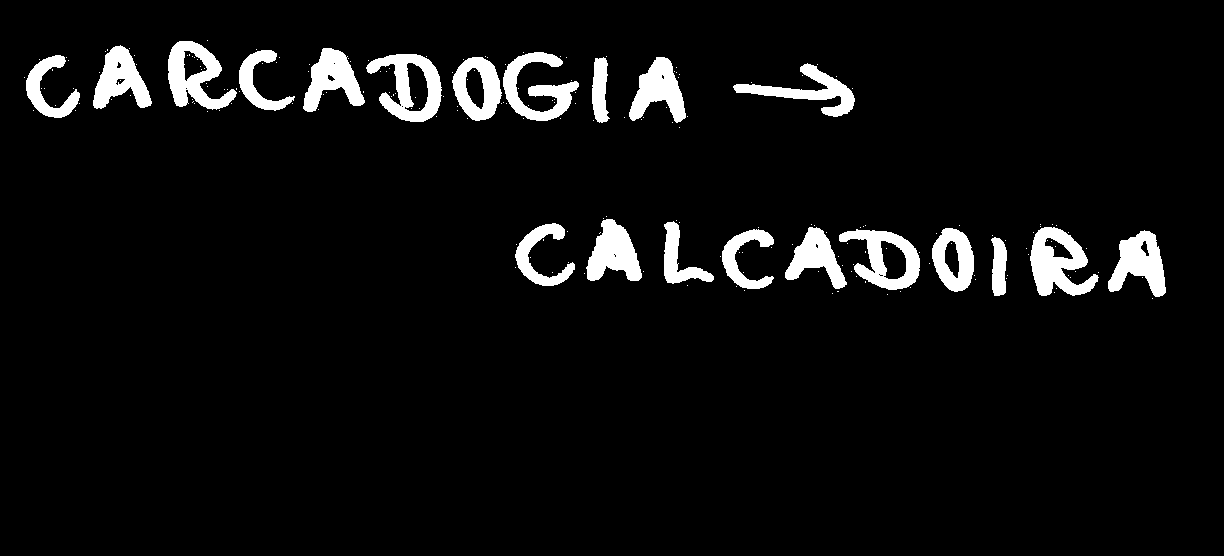 CARCADOGIA →
CALCADOIRA